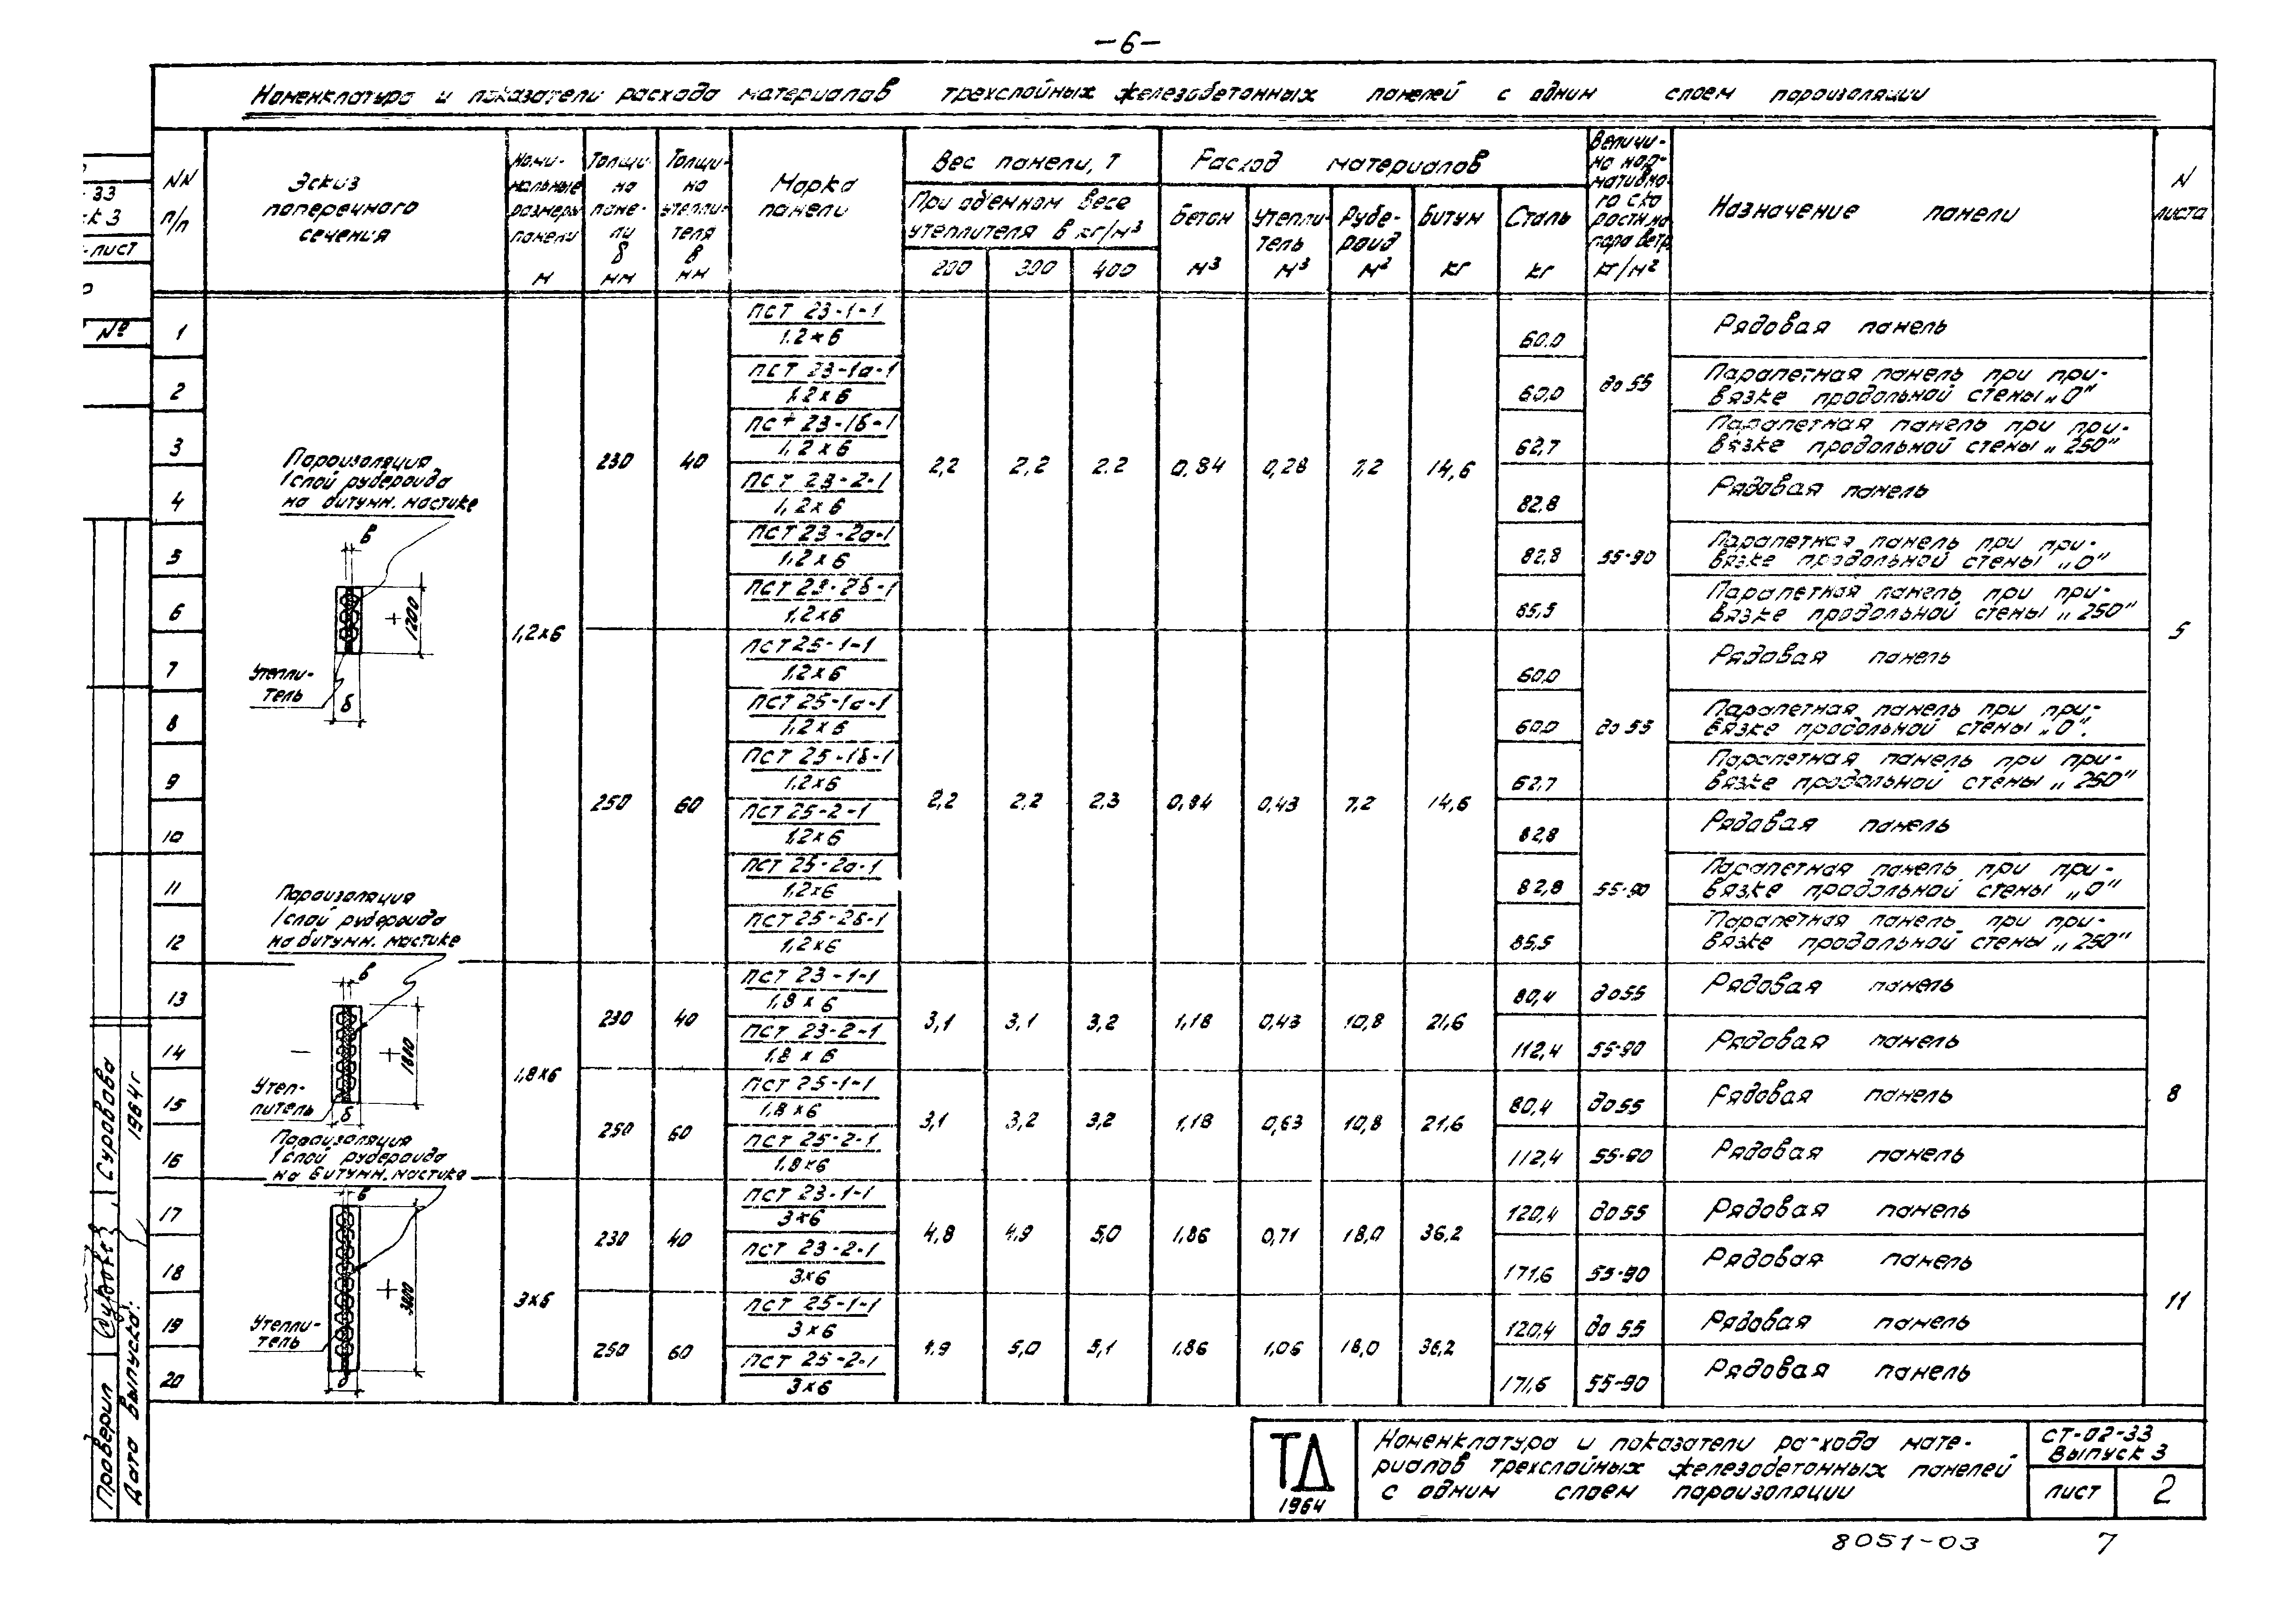 -6-
Номенклатура и показатели расхода материалов трехслойных железобетонных панелей с одним слоем пароизоляции
NN п/п
Эскиз поперечного сечения
Номинальные размеры панели м
Толщина панели δ мм
Толщина утеплителя в мм
Марка панели
Вес панели, Т
При объемном весе утеплителя в кг/м³
200 300 400
Расход материалов
Бетон м³
Утеплитель м³
Рубероид м²
Битум кг
Сталь кг
Величина нормативного скоростн. напора ветр. кг/м²
Назначение панели
N листа
33
к 3
-лист
№
Пароизоляция
1 слой рубероида
на битумн. мастике
в
+
1200
Утепли-
тель
δ
1,2×6
230 40 2,2 2,2 2.2 0,84 0,28 7,2 14,6
1 ПСТ 23-1-1 / 1.2×6 60.0 Рядовая панель
до 55
2 ПСТ 23-1а-1 / 1,2×6 60,0 Парапетная панель при при-
вязке продольной стены „0"
3 ПСТ 23-1б-1 / 1,2×6 62,7 Парапетная панель при при-
вязке продольной стены „250"
4 ПСТ 23-2-1 / 1,2×6 82,8 Рядовая панель
5 ПСТ 23-2а-1 / 1,2×6 82,8 55-90 Парапетная панель при при-
вязке продольной стены „0"
6 ПСТ 23-2б-1 / 1,2×6 85,5 Парапетная панель при при-
вязке продольной стены „250"
5
250 60 2,2 2,2 2,3 0,84 0,43 7,2 14,6
7 ПСТ 25-1-1 / 1,2×6 60,0 Рядовая панель
8 ПСТ 25-1а-1 / 1,2×6 60,0 до 55 Парапетная панель при при-
вязке продольной стены „0".
9 ПСТ 25-1б-1 / 1,2×6 62,7 Парапетная панель при при-
вязке продольной стены „250"
10 ПСТ 25-2-1 / 1,2×6 82,8 Рядовая панель
11 ПСТ 25-2а-1 / 1.2×6 82,8 55-90 Парапетная панель при при-
вязке продольной стены „0"
12 ПСТ 25-2б-1 / 1,2×6 85,5 Парапетная панель при при-
вязке продольной стены „250"
Пароизоляция
1 слой рубероида
на битумн. мастике
в
+
1800
Утеп-
литель
δ
1,8×6
13 ПСТ 23-1-1 / 1,8×6 80,4 до 55 Рядовая панель
230 40 3,1 3,1 3,2 1,18 0,43 10,8 21,6
14 ПСТ 23-2-1 / 1,8×6 112,4 55-90 Рядовая панель
15 ПСТ 25-1-1 / 1,8×6 80,4 до 55 Рядовая панель
8
250 60 3,1 3,2 3,2 1,18 0,63 10,8 21,6
16 ПСТ 25-2-1 / 1,8×6 112,4 55-90 Рядовая панель
Пароизоляция
1 слой рубероида
на битумн. мастике
в
+
3000
Утепли-
тель
δ
3×6
17 ПСТ 23-1-1 / 3×6 120,4 до 55 Рядовая панель
230 40 4,8 4,9 5,0 1,86 0,71 18,0 36,2
18 ПСТ 23-2-1 / 3×6 171,6 55-90 Рядовая панель
11
19 ПСТ 25-1-1 / 3×6 120,4 до 55 Рядовая панель
250 60 4.9 5,0 5,1 1,86 1,06 18,0 36,2
20 ПСТ 25-2-1 / 3×6 171,6 55-90 Рядовая панель
Проверил Суровова
Дата выпуска: 1964г
ТД
1964
Номенклатура и показатели расхода мате-
риалов трехслойных железобетонных панелей
с одним слоем пароизоляции
СТ-02-33
Выпуск 3
лист 2
8051-03 7